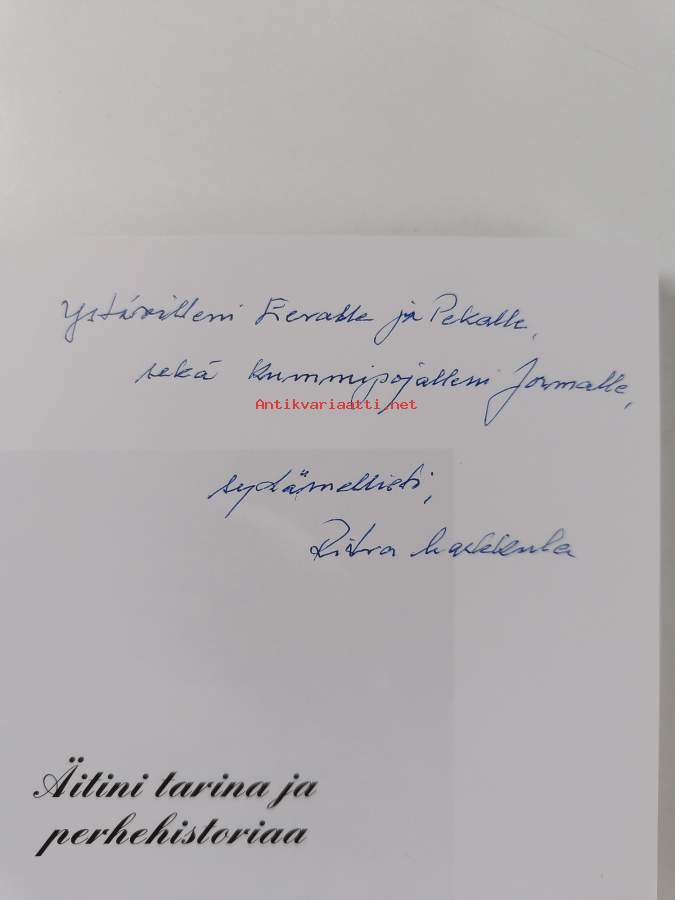 Ystävilleni Eevalle ja Pekalle,
sekä kummipojalleni Jormalle,
Antikvariaatti.net
sydämellisesti,
Ritva
Äitini tarina ja
perhehistoriaa